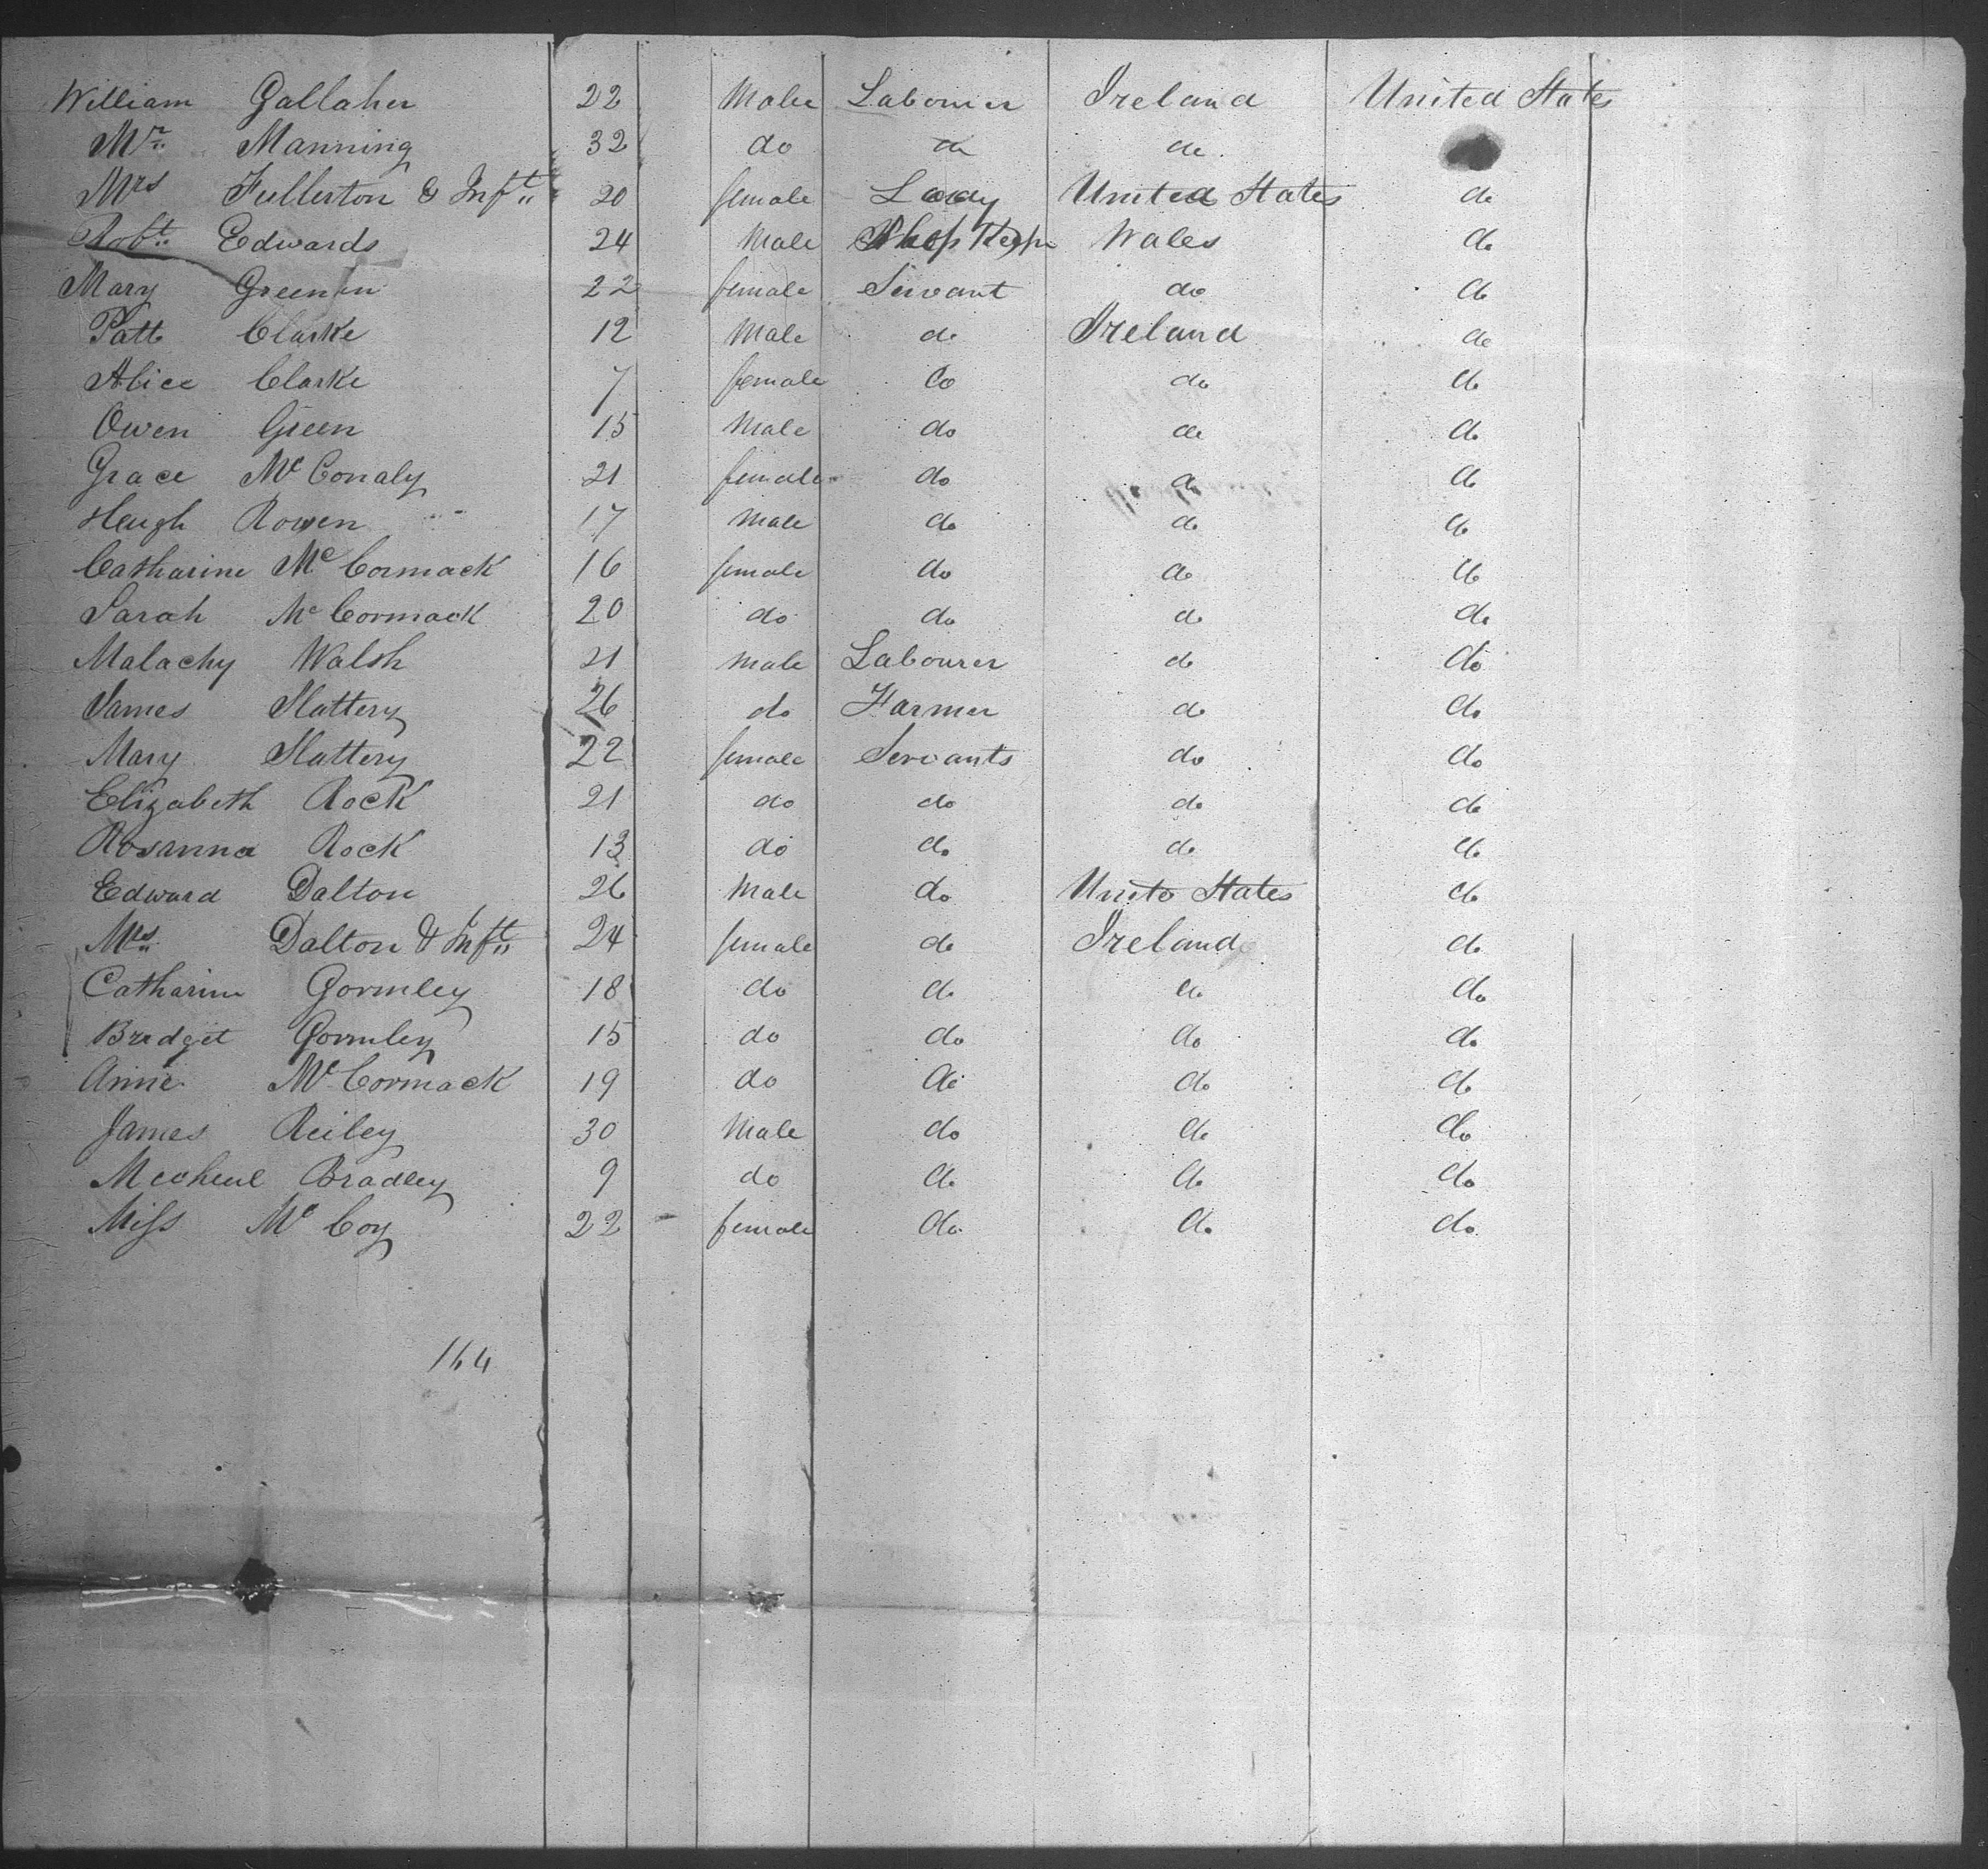 William Gallaher 22 Male Labourer Ireland United States
Mr. Manning 32 do do do
Mrs Fullerton & Inft. 20 female Lady United States do
Robt. Edwards 24 Male Shop Keepr Wales do
Mary Greenin 22 female Servant do do
Patt Clarke 12 Male do Ireland do
Alice Clarke 7 female do do do
Owen Green 15 Male do do do
Grace Mc Conaly 21 female do do do
Hugh Rowen 17 Male do do do
Catharine Mc Cormack 16 female do do do
Sarah Mc Cormack 20 do do do do
Malachy Walsh 21 Male Labourer do do
James Slattery 26 do Farmer do do
Mary Slattery 22 female Servants do do
Elizabeth Rock 21 do do do do
Rosanna Rock 13 do do do do
Edward Dalton 26 Male do Unitd States do
Mrs. Dalton & Inft. 24 female do Ireland do
Catharine Gormley 18 do do do do
Bridget Gormley 15 do do do do
Anne Mc Cormack 19 do do do do
James Reiley 30 Male do do do
Micheul Bradley 9 do do do do
Miss Mc Coy 22 female do do do
164